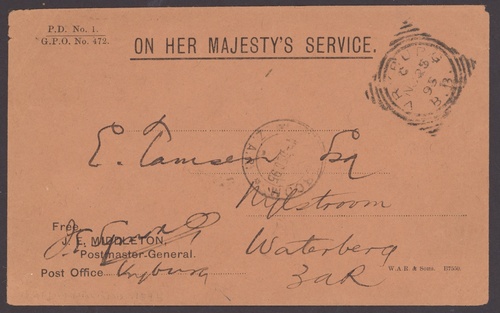 P.D. No. 1.
G.P.O. No. 472.
ON HER MAJESTY'S SERVICE.
VRYBURG
95
B.B.
E. Tamsen Esq
Z.A.R.
95
Nylstroom
Waterberg
ZAR
Free,
J. E. MIDDLETON,
Postmaster-General.
Post Office Vryburg
W.A.R. & Sons.